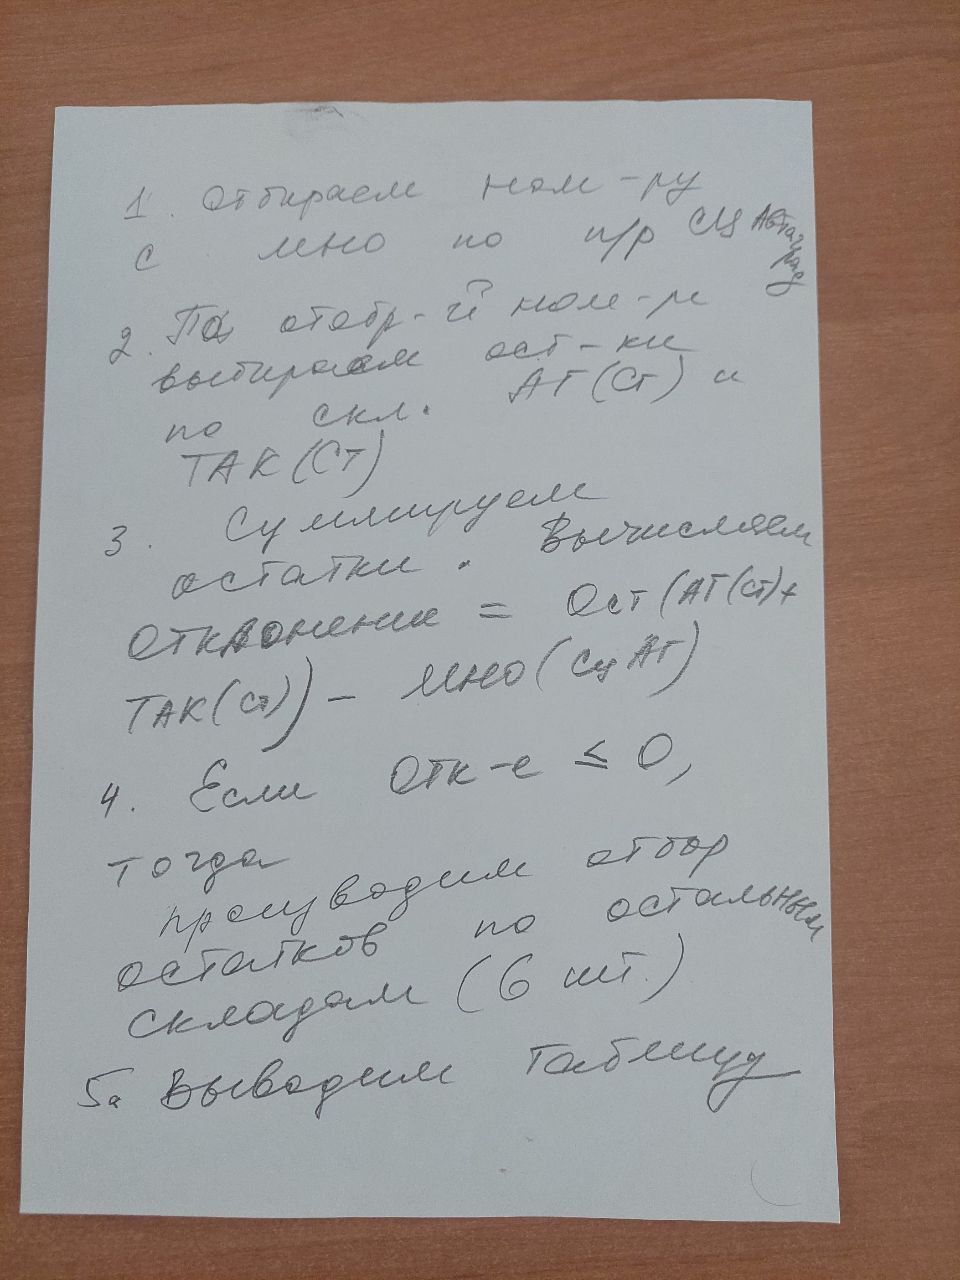 1. Отбираем ном-ру
с МНО по п/р СЦ Автоград
2. По отобр-й ном-ре
выбираем ост-ки
по скл. АТ(Ст) и
ТАК(Ст)
3. Суммируем
остатки. Вычисляем
отклонение = Ост(АТ(Ст)+
ТАК(Ст)) - МНО(СЦ АГ)
4. Если Отк-е ≤ 0,
тогда
производим отбор
остатков по остальным
складам (6 шт.)
5. Выводим таблицу